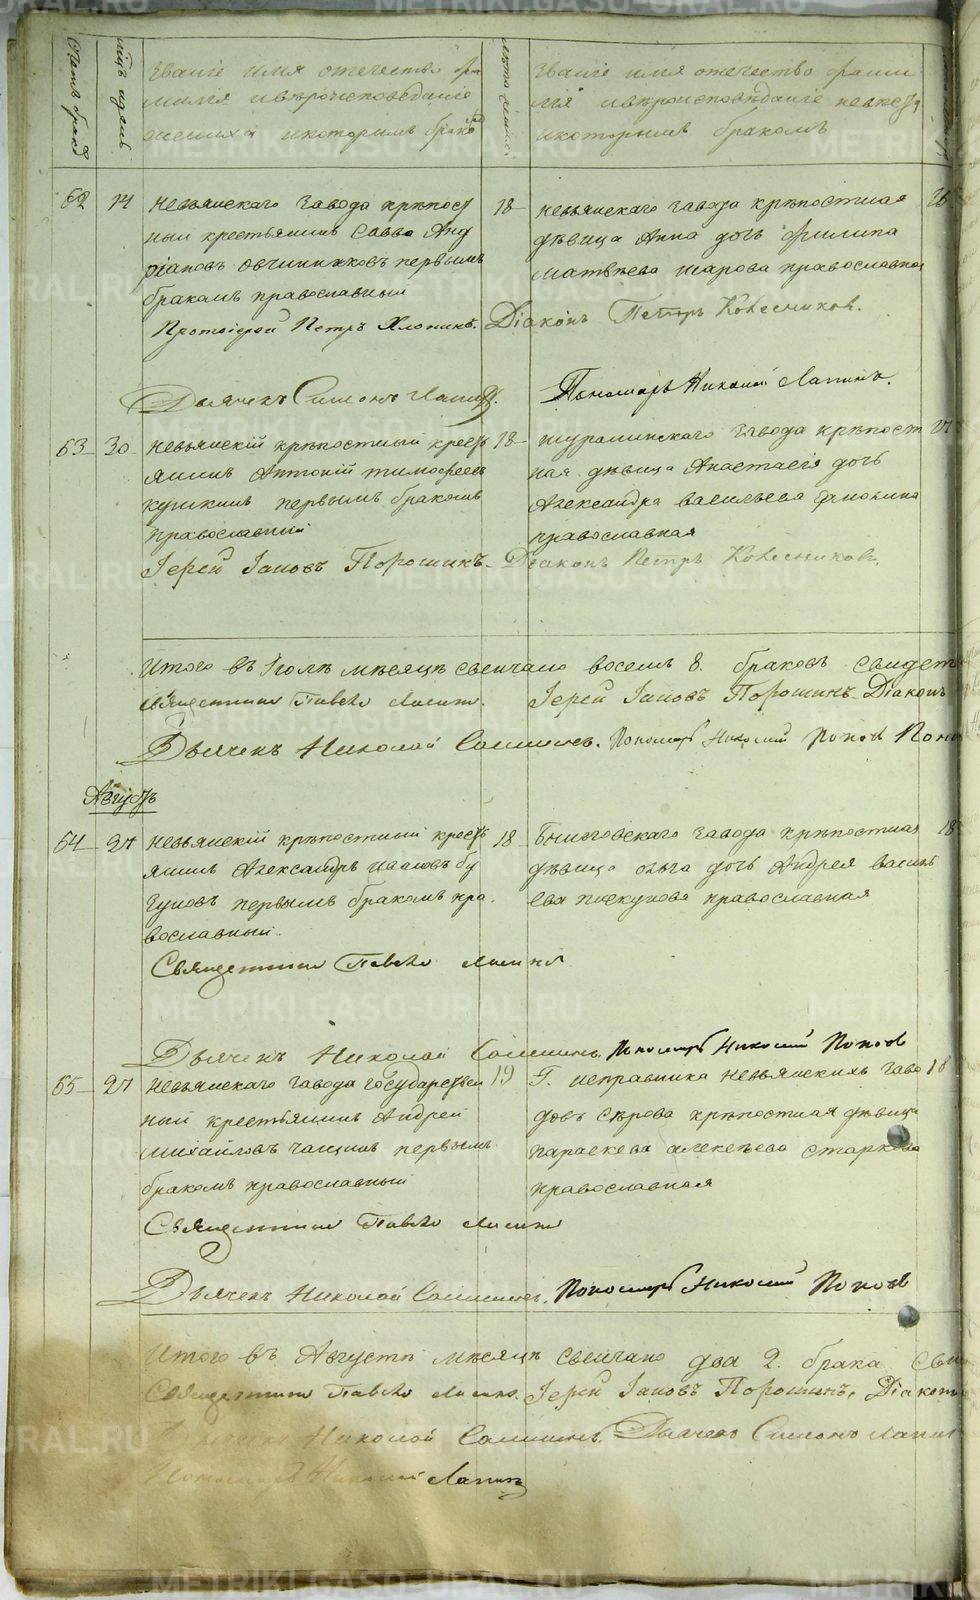 Счетъ брако
мѣсяцъ и день
Званіе имя отечество фа
милія и вѣроисповѣданіе
жениха и которымъ брако
лѣта жениха
Званіе имя отечество фами
лія и вѣроисповѣданіе невесты
и которымъ бракомъ
62 14 Невьянскаго завода крѣпост
ный крестьянинъ Савва Анд
ріановъ Овчинниковъ первымъ
бракомъ православный
18 Невьянскаго завода крѣпостная
дѣвица Анна дочь Филипа
Матвѣева Шарова православная
Протоіерей Петръ Хлопинъ. Діаконъ Петръ Колесников.
Дьячекъ Симонъ Лапин. Пономарь Николай Лапинъ.
63 30 Невьянскій крѣпостный кресть
янинъ Антоній Тимофеевъ
первымъ бракомъ
православный
18 Шуралинскаго завода крѣпост 21
ная дѣвица Анастасія дочь
Александра Васильева
православная
Іерей Іаковъ Порошинъ. Діаконъ Петръ Колесников.
Итого въ Іюлѣ мѣсяцѣ свенчано восемь 8. браковъ свидет
Священникъ Павелъ Іерей Іаковъ Порошинъ. Діаконъ
Дьячекъ Николай Пономарь Николай Попов Поно
Августъ
64 27 Невьянскій крѣпостный кресть
янинъ Александръ Ивановъ Бу
гуновъ первымъ бракомъ пра
вославный.
18 Быньговскаго завода крѣпостная 18
дѣвица Ольга дочь Андрея Василь
ева Пискунова православная
Священникъ Павелъ
Дьячекъ Николай Пономарь Николай Попов
65 27 Невьянскаго завода государствен
ный крестьянинъ Андрей
Михайловъ первымъ
бракомъ православный
19 Г. исправника Невьянскихъ заво 18
довъ Сѣрова крѣпостная дѣвица
Параскева Алексѣева Старкова
православная
Священникъ Павелъ
Дьячекъ Николай Пономарь Николай Попов
Итого въ Августѣ мѣсяцѣ свенчано два 2. брака
Священникъ Павелъ Іерей Іаковъ Порошинъ, Діаконъ
Николай Дьячекъ Симонъ Лапин
Пономарь Николай Лапинъ
METRIKI.GASO-URAL.RU